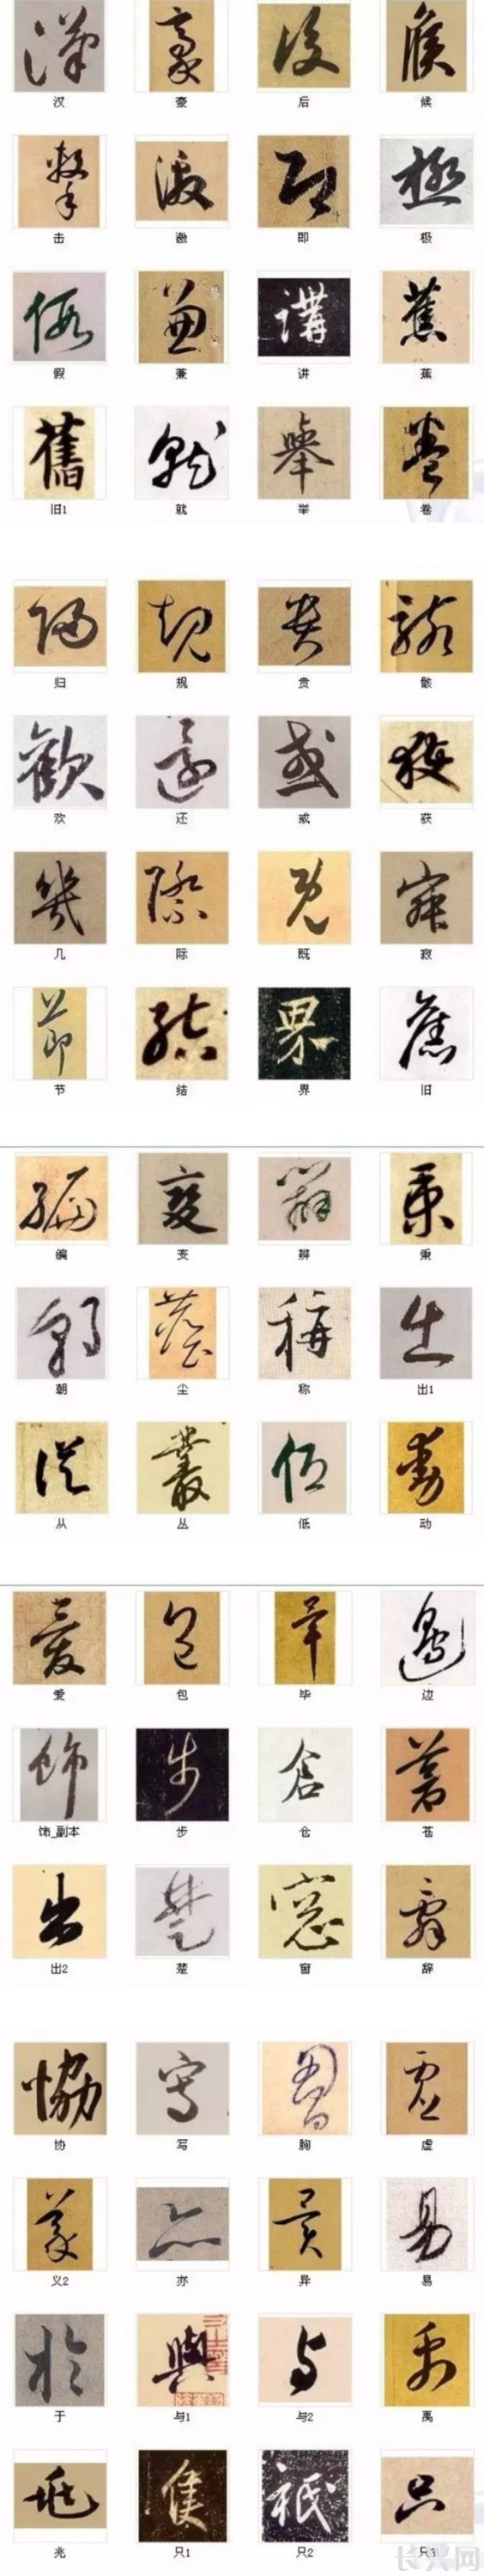 汉 豪 后 候
击 激 即 极
假 兼 讲 蕉
旧1 就 举 卷
归 规 贵 骸
欢 还 或 获
几 际 既 寂
节 结 界 旧
编 变 辨 秉
朝 尘 称 出1
从 丛 低 动
爱 包 毕 边
饰_副本 步 仓 苍
出2 楚 窗 辞
协 写 胸 虚
义2 亦 异 易
于 与1 与2 禹
兆 只1 只2 只3
长兴网